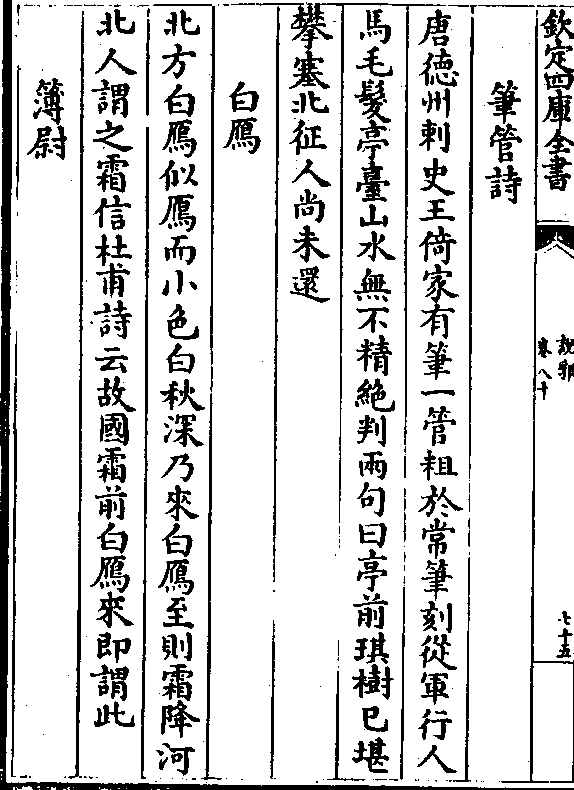 欽定四庫全書
說郛
卷八十
七十五
筆管詩
唐德州刺史王倚家有筆一管粗於常筆刻從軍行人
馬毛髮亭臺山水無不精絶判兩句曰亭前琪樹已堪
攀塞北征人尚未還
白鴈
北方白鴈似鴈而小色白秋深乃來白鴈至則霜降河
北人謂之霜信杜甫詩云故國霜前白鴈來即謂此
簿尉